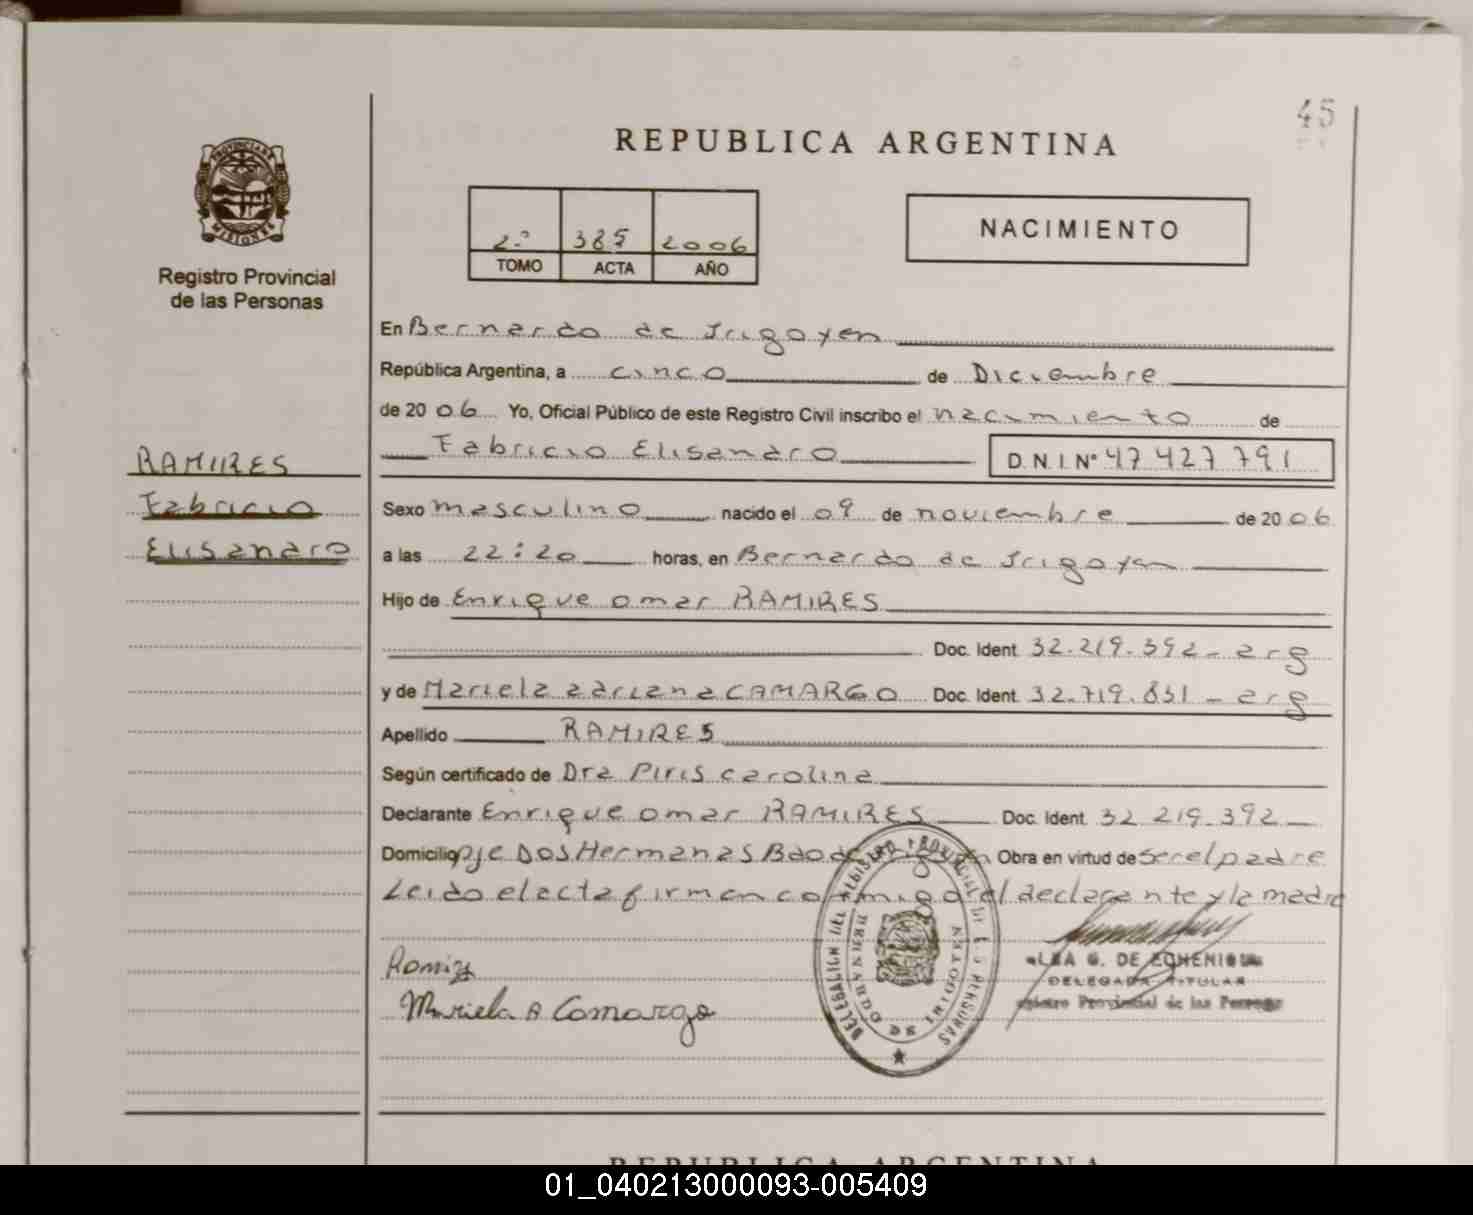 45
REPUBLICA ARGENTINA
PROVINCIA DE MISIONES
Registro Provincial
de las Personas
2º 385 2006
TOMO ACTA AÑO
NACIMIENTO
En Bernardo de Irigoyen
República Argentina, a cinco de Diciembre
de 20 06 Yo, Oficial Público de este Registro Civil inscribo el nacimiento de
Fabricio Elisandro D.N.I. Nº 47 427 791
RAMIRES
Fabricio
Elisandro
Sexo masculino nacido el 09 de noviembre de 20 06
a las 22:20 horas, en Bernardo de Irigoyen
Hijo de Enrique omar RAMIRES
Doc. Ident. 32.219.392 - arg
y de Mariela adriana CAMARGO Doc. Ident. 32.719.831 - arg
Apellido RAMIRES
Según certificado de Dra Piris carolina
Declarante Enrique omar RAMIRES Doc. Ident. 32 219.392
Domicilio pje Dos Hermanas Bdo de Obra en virtud de ser el padre
Leido el acta firman conmigo el declarante y la madre
Mariela A Camargo
DELEGACION DEL REGISTRO PROVINCIAL DE LAS PERSONAS
BERNARDO DE IRIGOYEN
G. DE
DELEGADA TITULAR
Registro Provincial de las Personas
REPUBLICA ARGENTINA
01_040213000093-005409